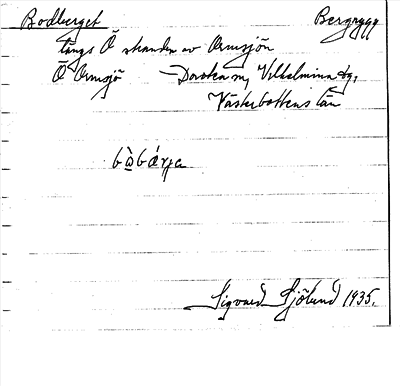 Bodberget Bergrygg
längs Ö stranden av Ormsjön
Ö Ormsjö – Dorotea sn, Vilhelmina tg,
Västerbottens län
Sigvard Sjölund 1935.